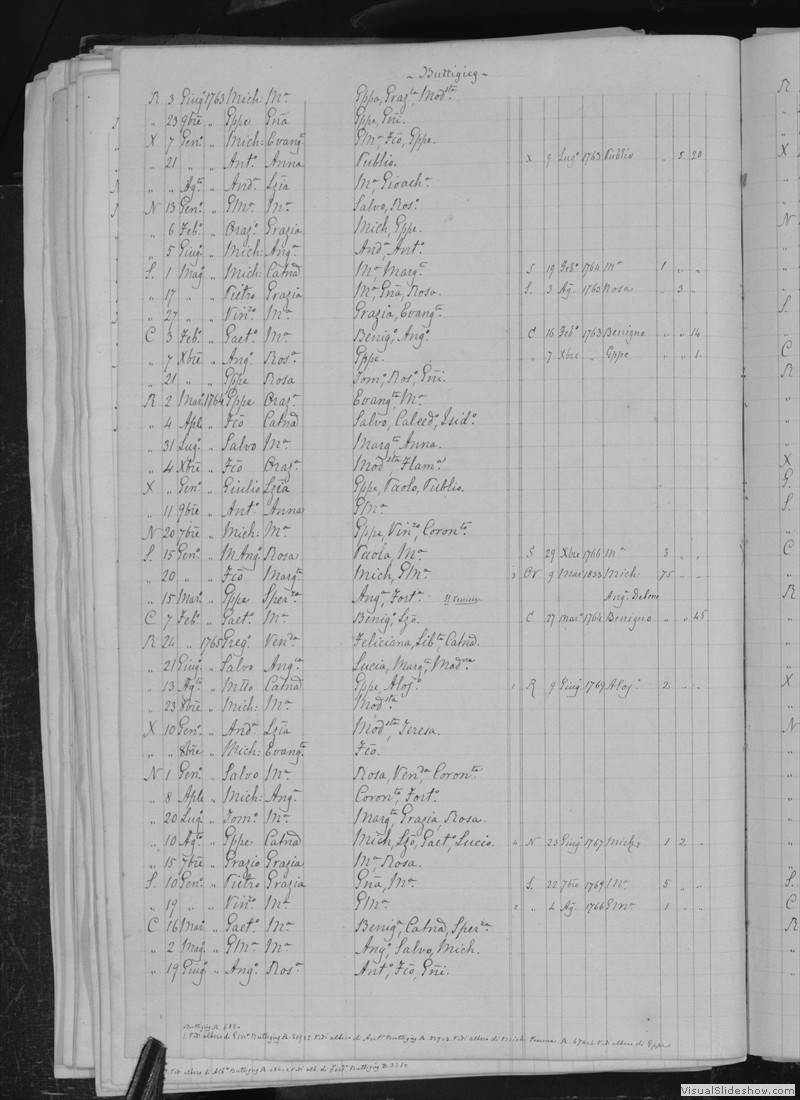 ~ Buttigieg ~
R 3 Giug.o 1763 Mich: M.a Gppa, Graz.a, Mod.sta
" 23 9bre " Gppe Gña Gppe, Gñi.
X 7 Gen.o " Mich: Evang.ta GM.a, Fcõ, Gppe.
" 21 " " Ant.o Anna Publio. X 9 Lug.o 1763 Publio " 5 20
" " Ag.to " And.a Lzia M.a, Gioach.o
N 13 Gen.o " GM.a M.a Salvo, Ros.o
" 6 Feb.o " Oraz.o Grazia Mich, Gppe.
" 5 Giug.o " Mich: Ang.a And.a, Ant.o
S. 1 Mag.o " Mich: Catnã M.a, Marg.ta S 19 Feb.o 1764 M.a 1 " "
" 17 " " Pietro Grazia M.a, Gña, Rosa. S. 3 Ag. 1763 Rosa " 3 "
" 27 " " Vin.zo M.a Grazia, Evang.ta
C 3 Feb.o " Gaet.o M.a Benig.o, Ang.o C 16 Feb.o 1763 Benigno " " 14
" 7 Xbre " Ang.o Ros.a Gppe. " 7 Xbre " Gppe " " 1.
" 21 " " Gppe Rosa Dom.o, Ros.o, Gñi.
R 2 Mar. 1764 Gppe Oraz.a Evang.ta, M.a
" 4 Aple " Fcõ Catnã Salvo, Calced.o, Isid.o
" 31 Lug.o " Salvo M.a Marg.ta, Anna.
" 4 Xbre " Fcõ Oraz.a Mod.sta, Flam.a
X " Gen.o " Giulio Lzia Gppe, Paolo, Publio.
" 11 9bre " Ant.o Anna GM.a
N 20 7bre " Mich: M.a Gppe, Vin.zo, Coron.ta
S. 15 Gen.o " M Ang.o Rosa Paola, M.a S 29 Xbre 1766 M.a 3 " "
" 20 " " Fcõ Marg.ta Mich, GM.a 3 Or 9 Mar. 1833 Mich: 75 " "
" 15 Mar. " Gppe Sper.za Ang.a, Fort.a Ang.a Debono
C 7 Feb.o " Gaet.o M.a Benig.o, Lzõ. C 27 mar.o 1764 Benigno " " 45
R 24 " 1765 Greg.o Ven.da Feliciana, Lib.ta, Catnã.
" 21 Giug.o " Salvo Ang.ca Lucia, Marg.ta, Mad.na
" 13 Ag.to " Mtto Catnã Gppe, Aloj.o 1 R 9 Giug. 1769 Aloj.o 2 " "
" 23 8bre " Mich: M.a Mod.sta
X 10 Gen.o " And.a Lzia Mod.sta, Teresa.
" " 8bre " Mich: Evang.ta Fcõ.
N 1 Gen.o " Salvo M.a Rosa, Ven.da, Coron.ta
" 8 Aple " Mich: Ang.a Coron.ta, Fort.o
" 20 Lug.o " Dom.o M.a Marg.ta, Grazia, Rosa.
" 10 Ag.to " Gppe Catnã Mich, Lzõ, Gaet.o, Lucio. 4 N 23 Giug. 1767 Mich: 1 2 "
" 15 7bre " Grazio Grazia M.a, Rosa.
S. 10 Gen.o " Pietro Grazia Gña, M.a S. 22 7bre 1769 M.a 5 " "
" 19 " " Vin.zo M.a GM.a 2 " 4 Ag. 1766 GM.a 1 " "
C 16 Mar. " Gaet.o M.a Benig.a, Catnã, Sper.za
" 2 Mag. " GM.a M.a Ang.o, Salvo, Mich.
" 19 Giug.o " Ang.o Ros.a Ant.o, Fcõ, Gñi.
VisualSlideshow.com